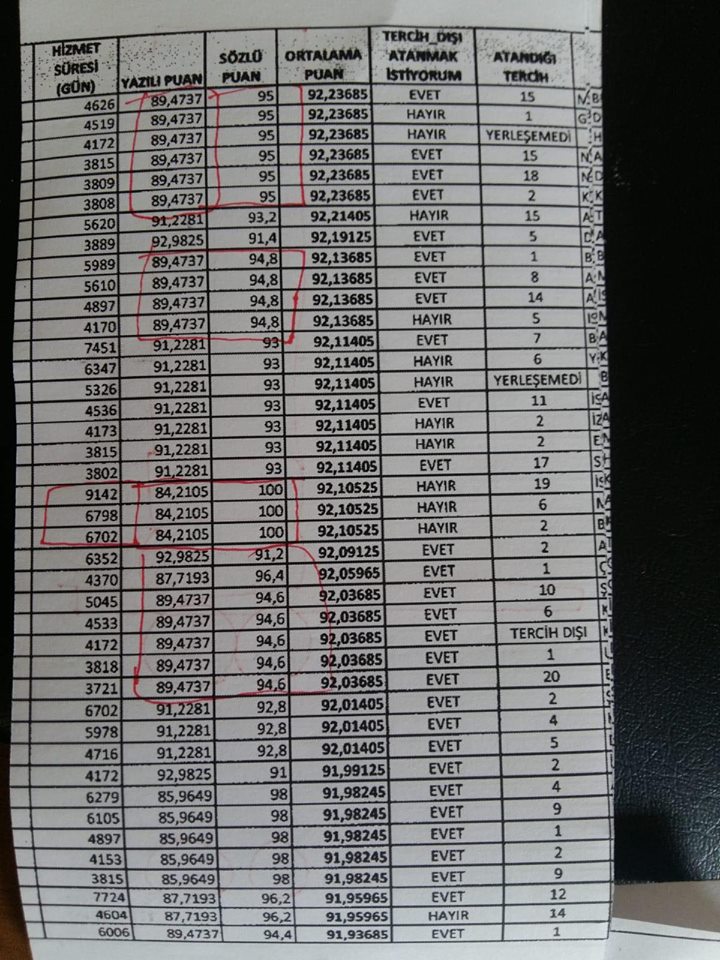 HİZMET SÜRESİ (GÜN) YAZILI PUAN SÖZLÜ PUAN ORTALAMA PUAN TERCİH_DIŞI ATANMAK İSTİYORUM ATANDIĞI TERCİH
4626 89,4737 95 92,23685 EVET 15
4519 89,4737 95 92,23685 HAYIR 1
4172 89,4737 95 92,23685 HAYIR YERLEŞEMEDİ
3815 89,4737 95 92,23685 EVET 15
3809 89,4737 95 92,23685 EVET 18
3808 89,4737 95 92,23685 EVET 2
5620 91,2281 93,2 92,21405 HAYIR 15
3889 92,9825 91,4 92,19125 EVET 5
5989 89,4737 94,8 92,13685 EVET 1
5610 89,4737 94,8 92,13685 EVET 8
4897 89,4737 94,8 92,13685 EVET 14
4170 89,4737 94,8 92,13685 HAYIR 5
7451 91,2281 93 92,11405 EVET 7
6347 91,2281 93 92,11405 HAYIR 6
5326 91,2281 93 92,11405 HAYIR YERLEŞEMEDİ
4536 91,2281 93 92,11405 EVET 11
4173 91,2281 93 92,11405 HAYIR 2
3815 91,2281 93 92,11405 HAYIR 2
3802 91,2281 93 92,11405 EVET 17
9142 84,2105 100 92,10525 HAYIR 19
6798 84,2105 100 92,10525 HAYIR 6
6702 84,2105 100 92,10525 HAYIR 2
6352 92,9825 91,2 92,09125 EVET 2
4370 87,7193 96,4 92,05965 EVET 1
5045 89,4737 94,6 92,03685 EVET 10
4533 89,4737 94,6 92,03685 EVET 6
4172 89,4737 94,6 92,03685 EVET TERCİH DIŞI
3818 89,4737 94,6 92,03685 EVET 1
3721 89,4737 94,6 92,03685 EVET 20
6702 91,2281 92,8 92,01405 EVET 2
5978 91,2281 92,8 92,01405 EVET 4
4716 91,2281 92,8 92,01405 EVET 5
4172 92,9825 91 91,99125 EVET 2
6279 85,9649 98 91,98245 EVET 4
6105 85,9649 98 91,98245 EVET 9
4897 85,9649 98 91,98245 EVET 1
4153 85,9649 98 91,98245 EVET 2
3815 85,9649 98 91,98245 EVET 9
7724 87,7193 96,2 91,95965 EVET 12
4604 87,7193 96,2 91,95965 HAYIR 14
6006 89,4737 94,4 91,93685 EVET 1